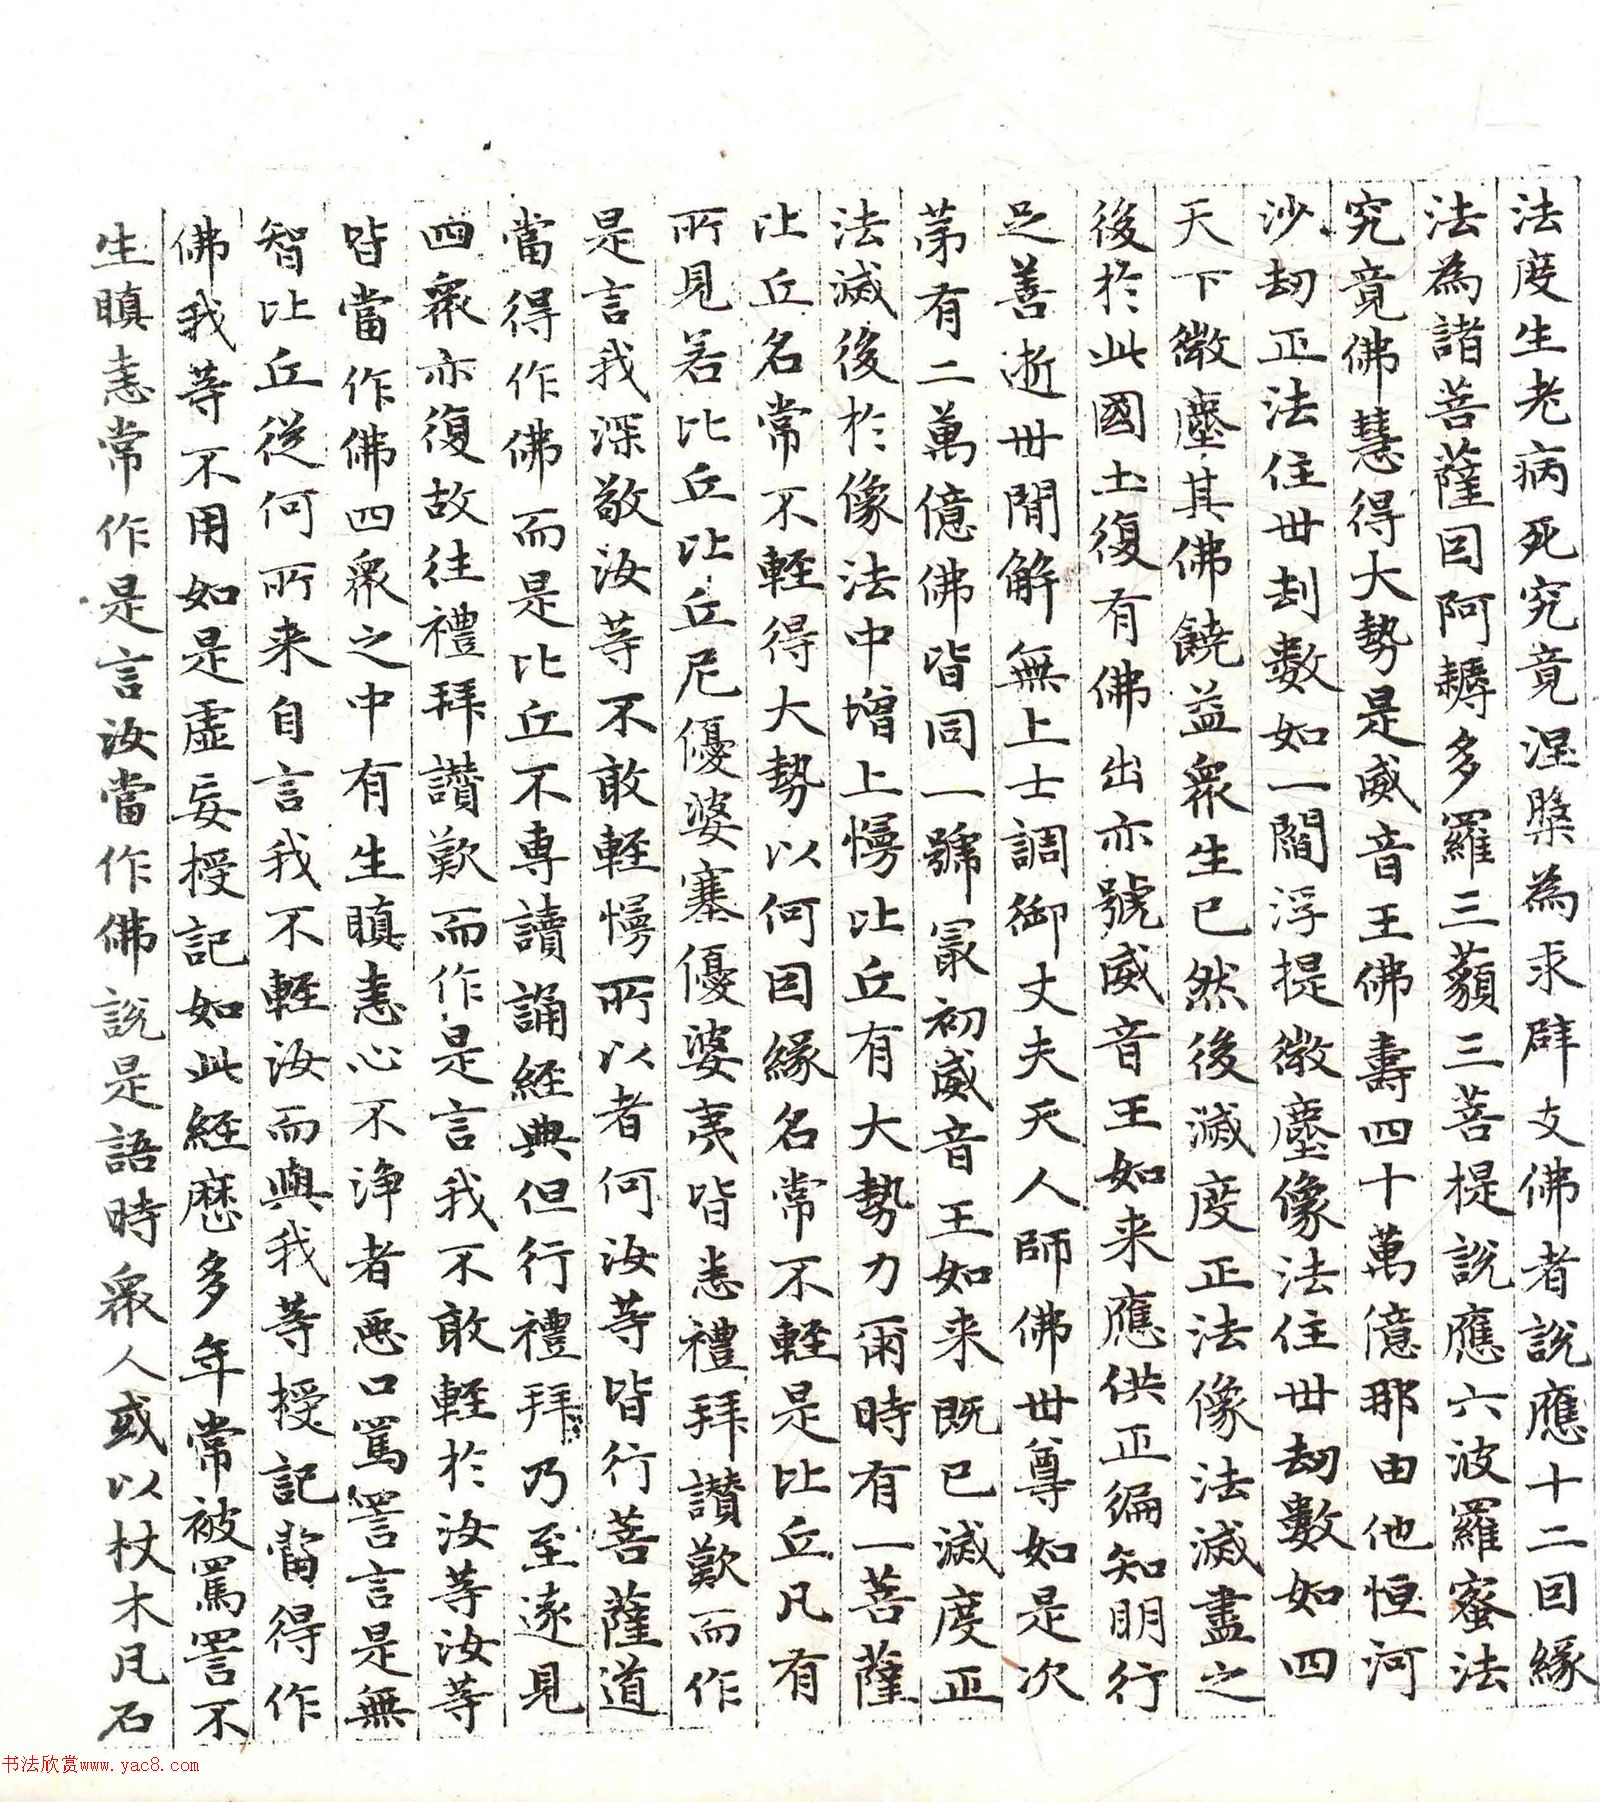 法度生老病死究竟涅槃為求辟支佛者說應十二因緣
法為諸菩薩因阿耨多羅三藐三菩提說應六波羅蜜法
究竟佛慧得大勢是威音王佛壽四十萬億那由他恒河
沙劫正法住世劫數如一閻浮提微塵像法住世劫數如四
天下微塵其佛饒益眾生已然後滅度正法像法滅盡之
後於此國土復有佛出亦號威音王如来應供正徧知明行
足善逝世間解無上士調御丈夫天人師佛世尊如是次
第有二萬億佛皆同一號最初威音王如来既已滅度正
法滅後於像法中增上慢比丘有大勢力爾時有一菩薩
比丘名常不輕得大勢以何因緣名常不輕是比丘凡有
所見若比丘比丘尼優婆塞優婆夷皆悉禮拜讚歎而作
是言我深敬汝等不敢輕慢所以者何汝等皆行菩薩道
當得作佛而是比丘不專讀誦經典但行禮拜乃至遠見
四眾亦復故往禮拜讚歎而作是言我不敢輕於汝等汝等
皆當作佛四眾之中有生瞋恚心不淨者惡口罵詈言是無
智比丘從何所来自言我不輕汝而與我等授記當得作
佛我等不用如是虛妄授記如此經歷多年常被罵詈不
生瞋恚常作是言汝當作佛說是語時眾人或以杖木瓦石
书法欣赏www.yac8.com